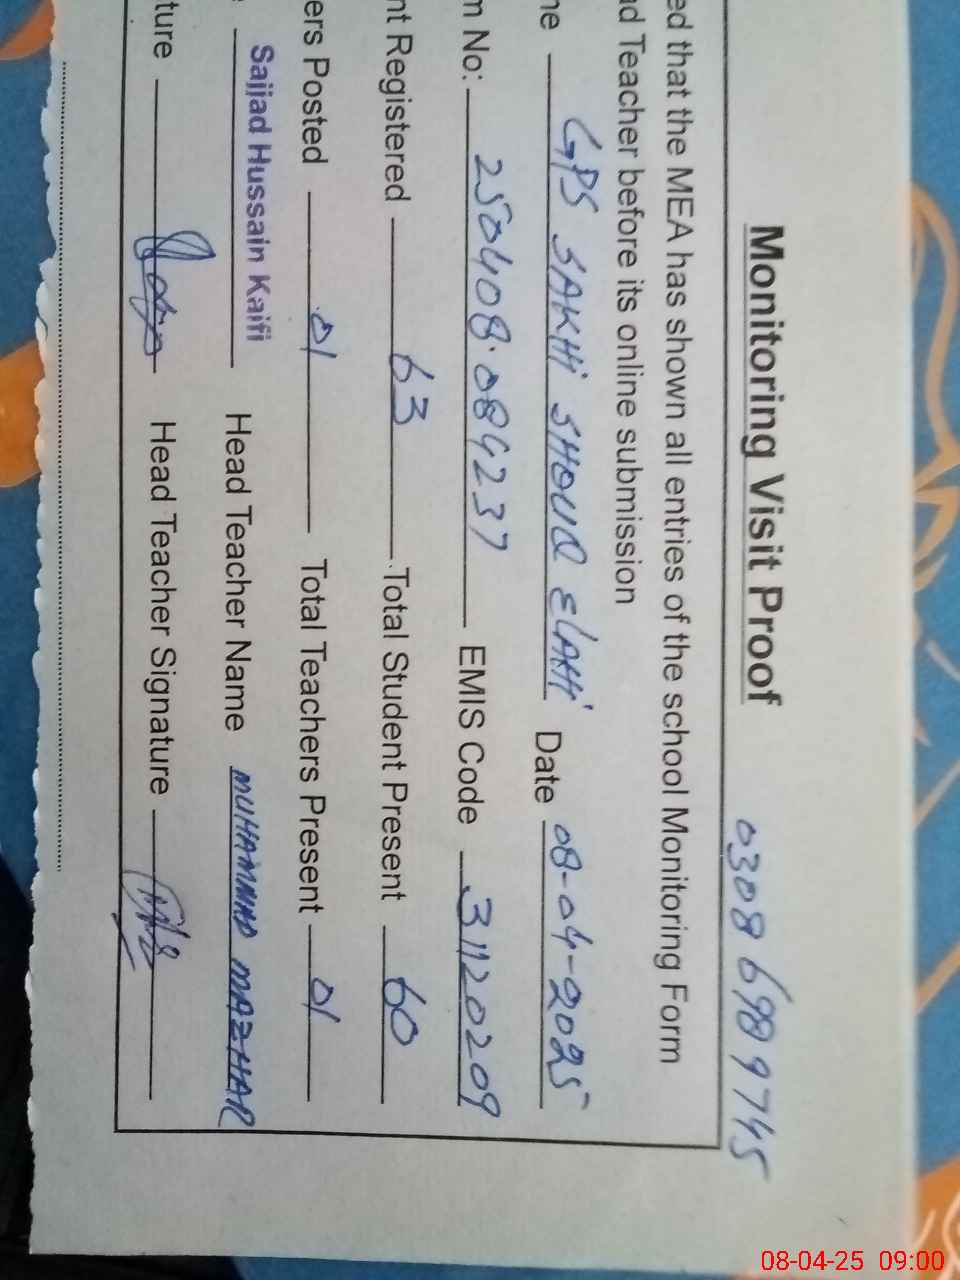 Monitoring Visit Proof 0308 6989745
ed that the MEA has shown all entries of the school Monitoring Form
ad Teacher before its online submission
me GPS SAKHI SHOUQ ELAHI Date 08-04-2025
m No: 250408.084237 EMIS Code 31120209
nt Registered 63 Total Student Present 60
ers Posted 01 Total Teachers Present 01
Sajjad Hussain Kaifi Head Teacher Name MUHAMMAD MAZHAR
ture Head Teacher Signature
08-04-25 09:00